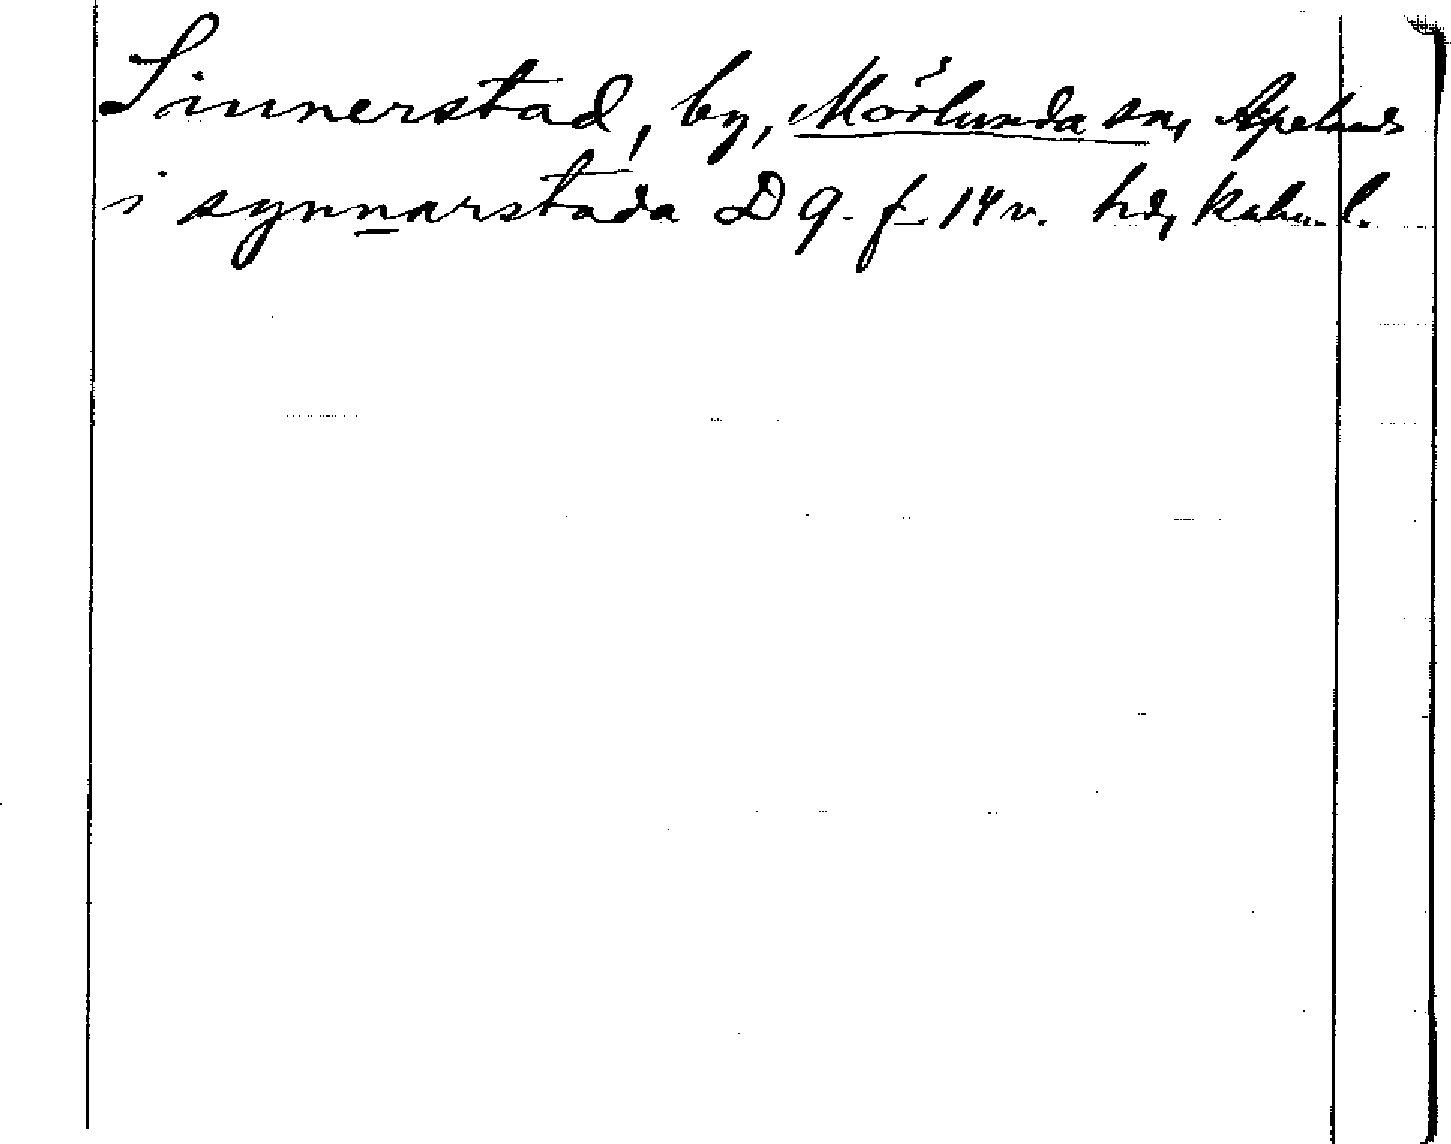 Sinnerstad, by, Mörlunda sn, Aspelands
i synnarstada D 9. f. 14 v. hd, Kalm. l.